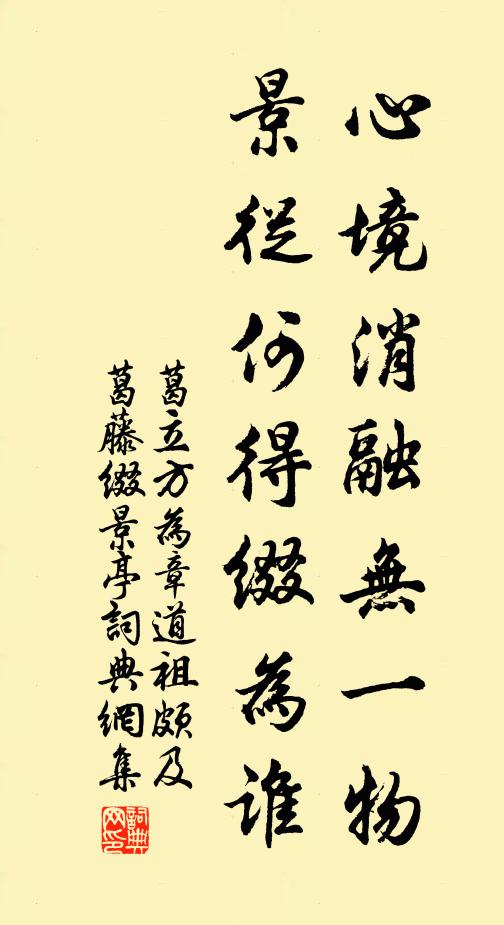 心境消融無一物
景從何得綴為誰
葛立方為章道祖頗及
葛藤綴景亭詞典網集
詞典
网印